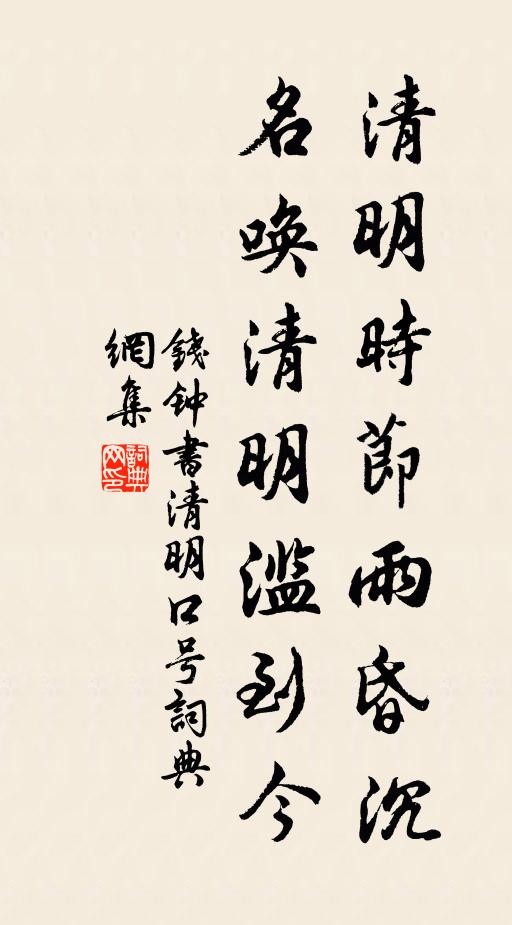 清明時節雨昏沉
名喚清明濫到今
錢钟書清明口号詞典
網集
詞典
网印